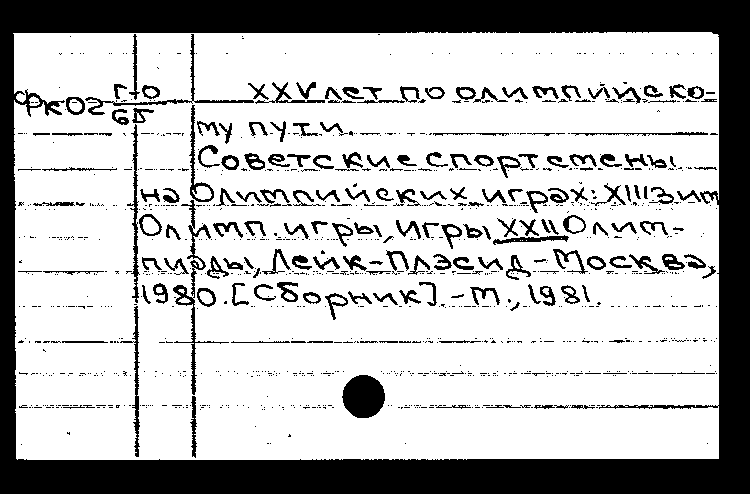 XXV лет по олимпийско-
Фк02 Г-0/65
му пути.
Советские спортсмены
на Олимпийских играх: XIII зим
Олимп. игры, игры XXII Олим-
пиады, Лейк-Плэсид-Москва,
1980. [Сборник]. - М., 1981.